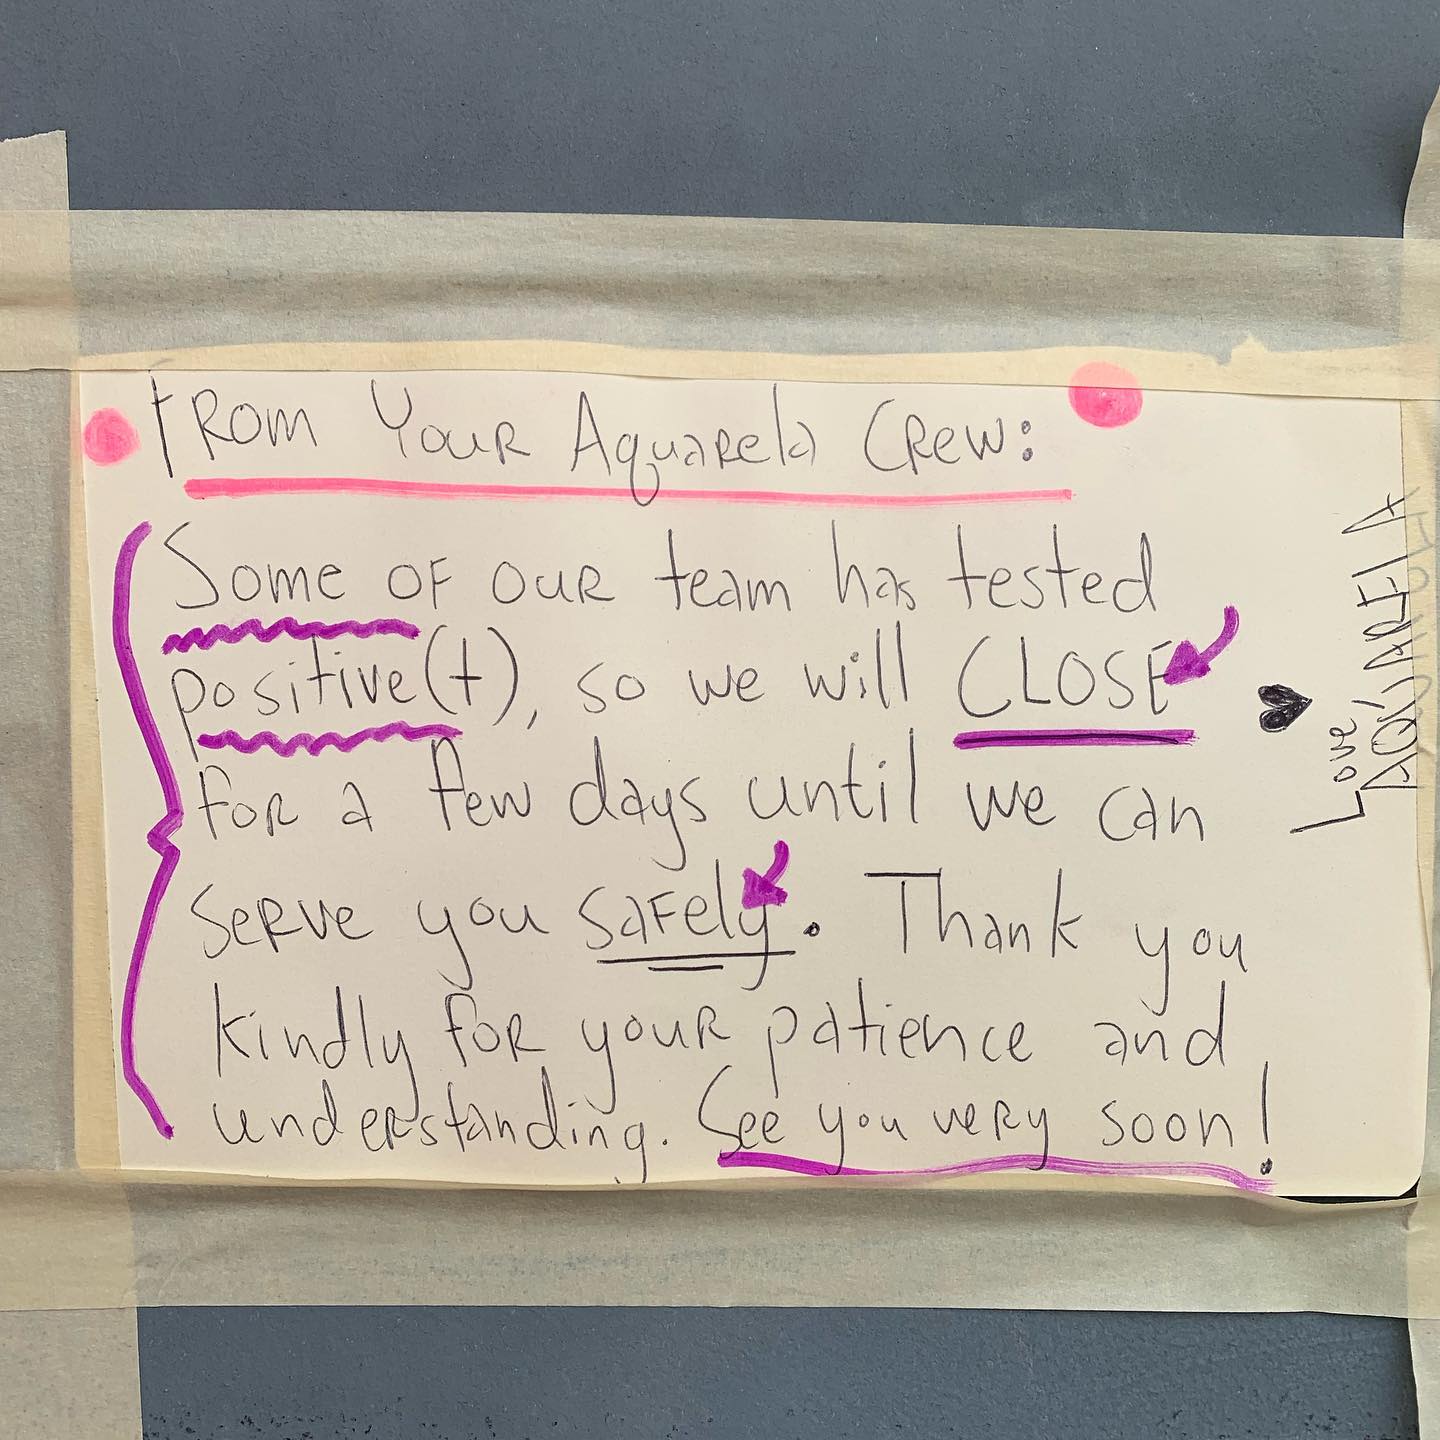 From Your Aquarela Crew:
Some of our team has tested
positive(+), so we will CLOSE
for a few days until we can
serve you safely. Thank you
kindly for your patience and
understanding. See you very soon!
Love,
AQUARELA